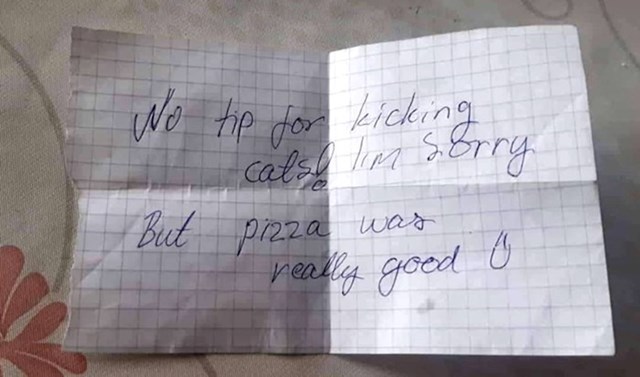 No tip for kicking
cats! I'm sorry
But pizza was
really good